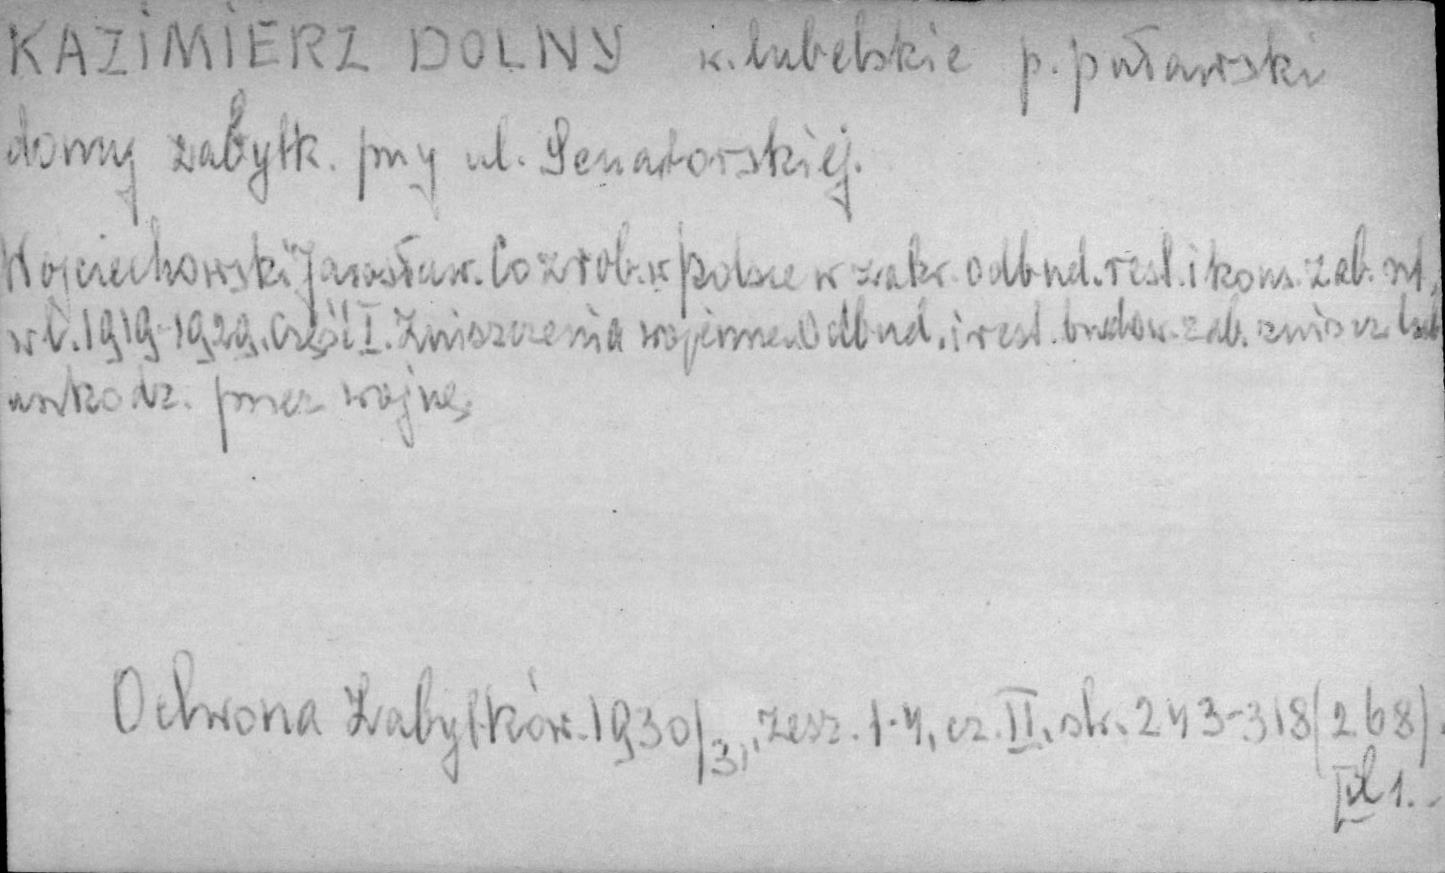 KAZIMIERZ DOLNY w. lubelskie p. puławski
domy zabytk. przy ul. Senatorskiej.
Wojciechowski Jarosław. Co zrob. w Polsce w zakr. odbud. rest. i kons. zab. szt.
w l. 1919-1929. Część I. Zniszczenia wojenne. Odbud. i rest. budow. zab. zniszcz. lub
uszkodz. przez wojnę.
Ochrona Zabytków. 1930/31, zesz. 1-4, cz. II, str. 243-318 (268).
il 1.